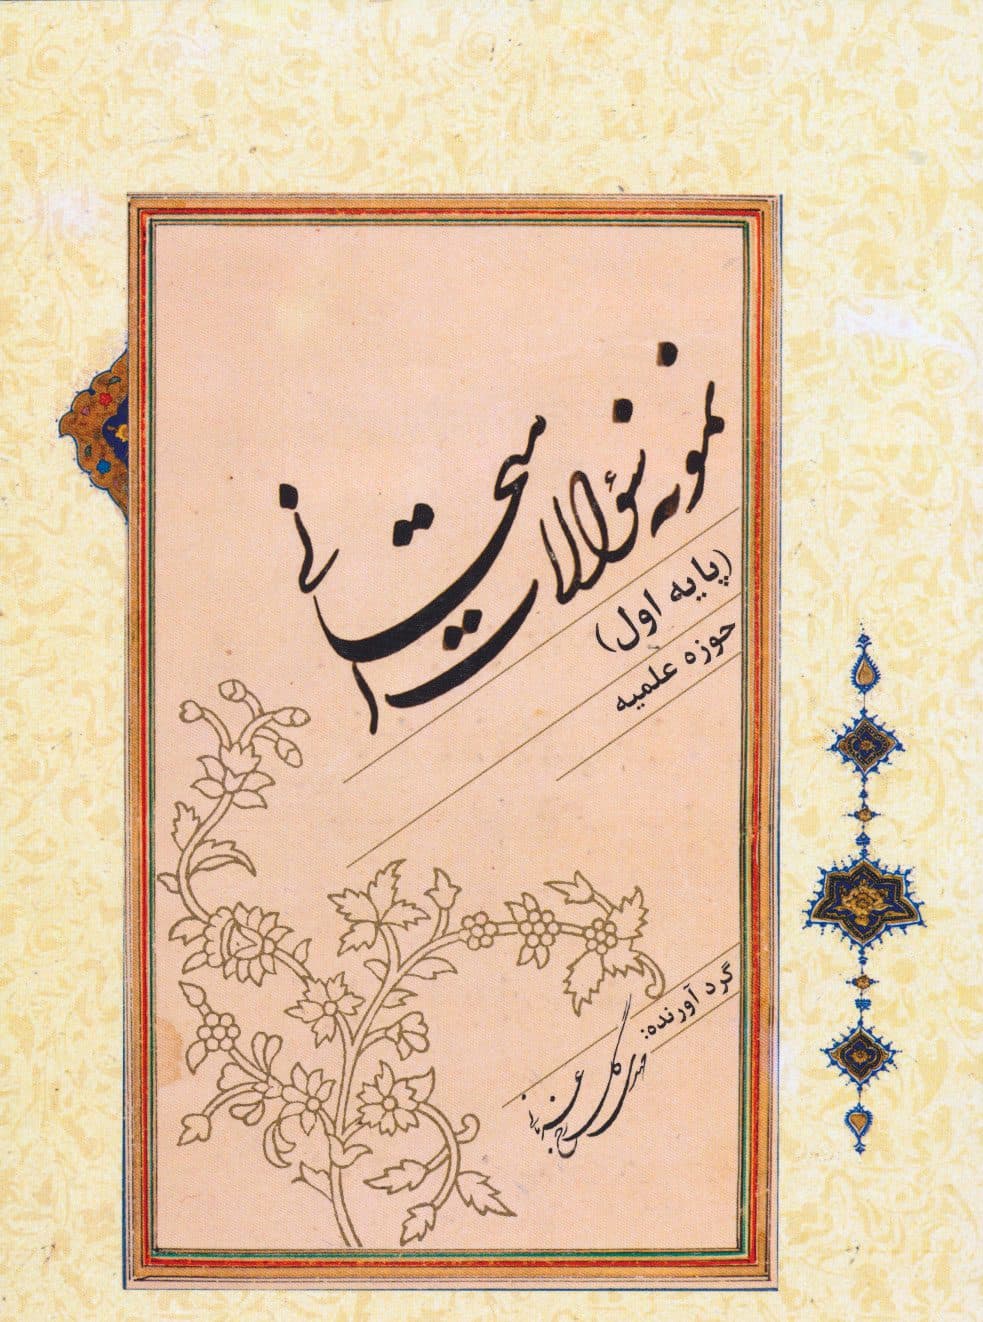 نمونه سئوالات امتحانی
(پایه اول)
حوزه علمیه
گردآورنده:
مهدی گل